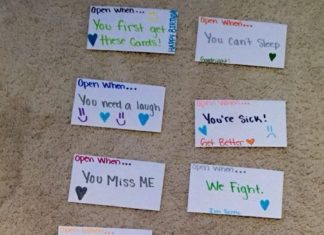 Open When...
You first get
these Cards!
HAPPY BIRTHDAY
Open When...
You can't Sleep
Goodnight!
Open When...
You need a laugh
Open When...
You're Sick!
Get Better
Open When...
You Miss ME
Open When...
We Fight.
Open When...